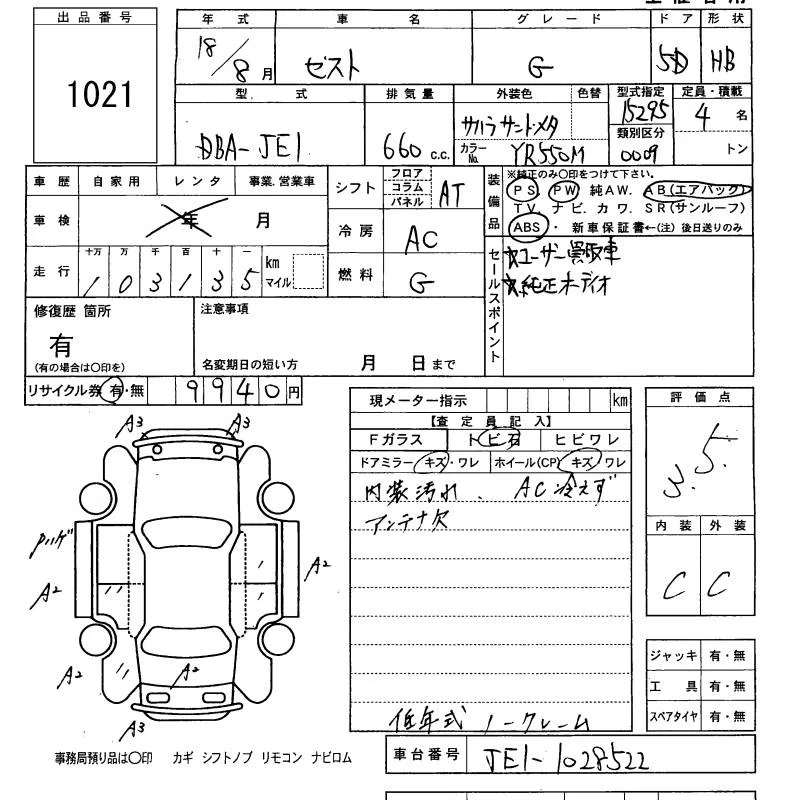 出品番号
1021
年式 車名 グレード ドア 形状
18/8月 ゼスト G 5D HB
型式 排気量 外装色 色替 型式指定 定員・積載
DBA-JE1 660 c.c. サハラサンド・メタ 15295 4名
カラーNo. YR550M 類別区分 0009 トン
車歴 自家用 レンタ 事業.営業車
車検 年 月
走行 十万 万 千 百 十 一 km マイル
1 0 3 1 3 5
シフト フロア コラム パネル AT
冷房 AC
燃料 G
装備品 ※純正のみ〇印をつけて下さい。
PS PW 純AW. AB(エアバック)
TV. ナビ. カワ. SR(サンルーフ)
ABS ・ 新車保証書←(注) 後日送りのみ
セールスポイント
☆ユーザー買取車
☆純正オーディオ
修復歴 箇所
有
(有の場合は〇印を)
注意事項
名変期日の短い方 月 日まで
リサイクル券 有・無 9940円
現メーター指示 km
【査定員記入】
Fガラス トビ石 ヒビワレ
ドアミラー キズ・ワレ ホイール(CP) キズ・ワレ
内装汚れ、AC冷えず
アンテナ欠
低年式 ノークレーム
評価点
3.5
内装 外装
C C
ジャッキ 有・無
工具 有・無
スペアタイヤ 有・無
A3 A3
A2
A2
A2 A2
A3
事務局預り品は〇印 カギ シフトノブ リモコン ナビロム
車台番号 JE1-1028522